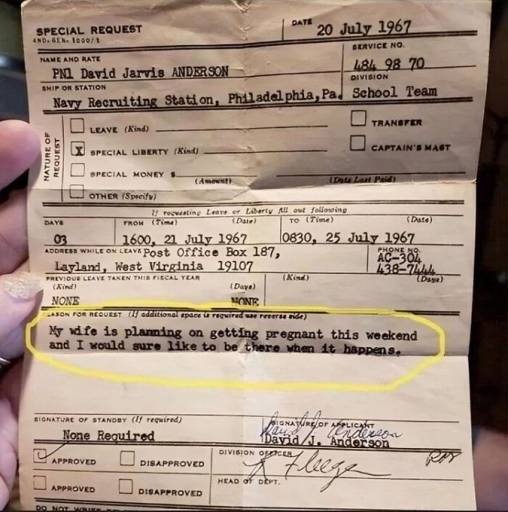 SPECIAL REQUEST
DATE 20 July 1967
NAME AND RATE
SERVICE NO.
PN1 David Jarvis ANDERSON
484 98 70
SHIP OR STATION
DIVISION
Navy Recruiting Station, Philadelphia,Pa. School Team
NATURE OF REQUEST
LEAVE (Kind)
TRANSFER
X SPECIAL LIBERTY (Kind)
CAPTAIN'S MAST
SPECIAL MONEY $
(Amount) (Date Last Paid)
OTHER (Specify)
If requesting Leave or Liberty fill out following
DAYS FROM (Time) (Date) TO (Time) (Date)
03 1600, 21 July 1967 0830, 25 July 1967
ADDRESS WHILE ON LEAVE Post Office Box 187,
PHONE NO.
AC-304
Layland, West Virginia 19107
438-7444
PREVIOUS LEAVE TAKEN THIS FISCAL YEAR
(Kind) (Days) (Kind) (Days)
NONE NONE
REASON FOR REQUEST (If additional space is required use reverse side)
My wife is planning on getting pregnant this weekend
and I would sure like to be there when it happens.
SIGNATURE OF STANDBY (If required)
SIGNATURE OF APPLICANT
None Required
David J. Anderson
David J. Anderson
APPROVED DISAPPROVED
DIVISION OFFICER
APPROVED DISAPPROVED
HEAD OF DEPT.